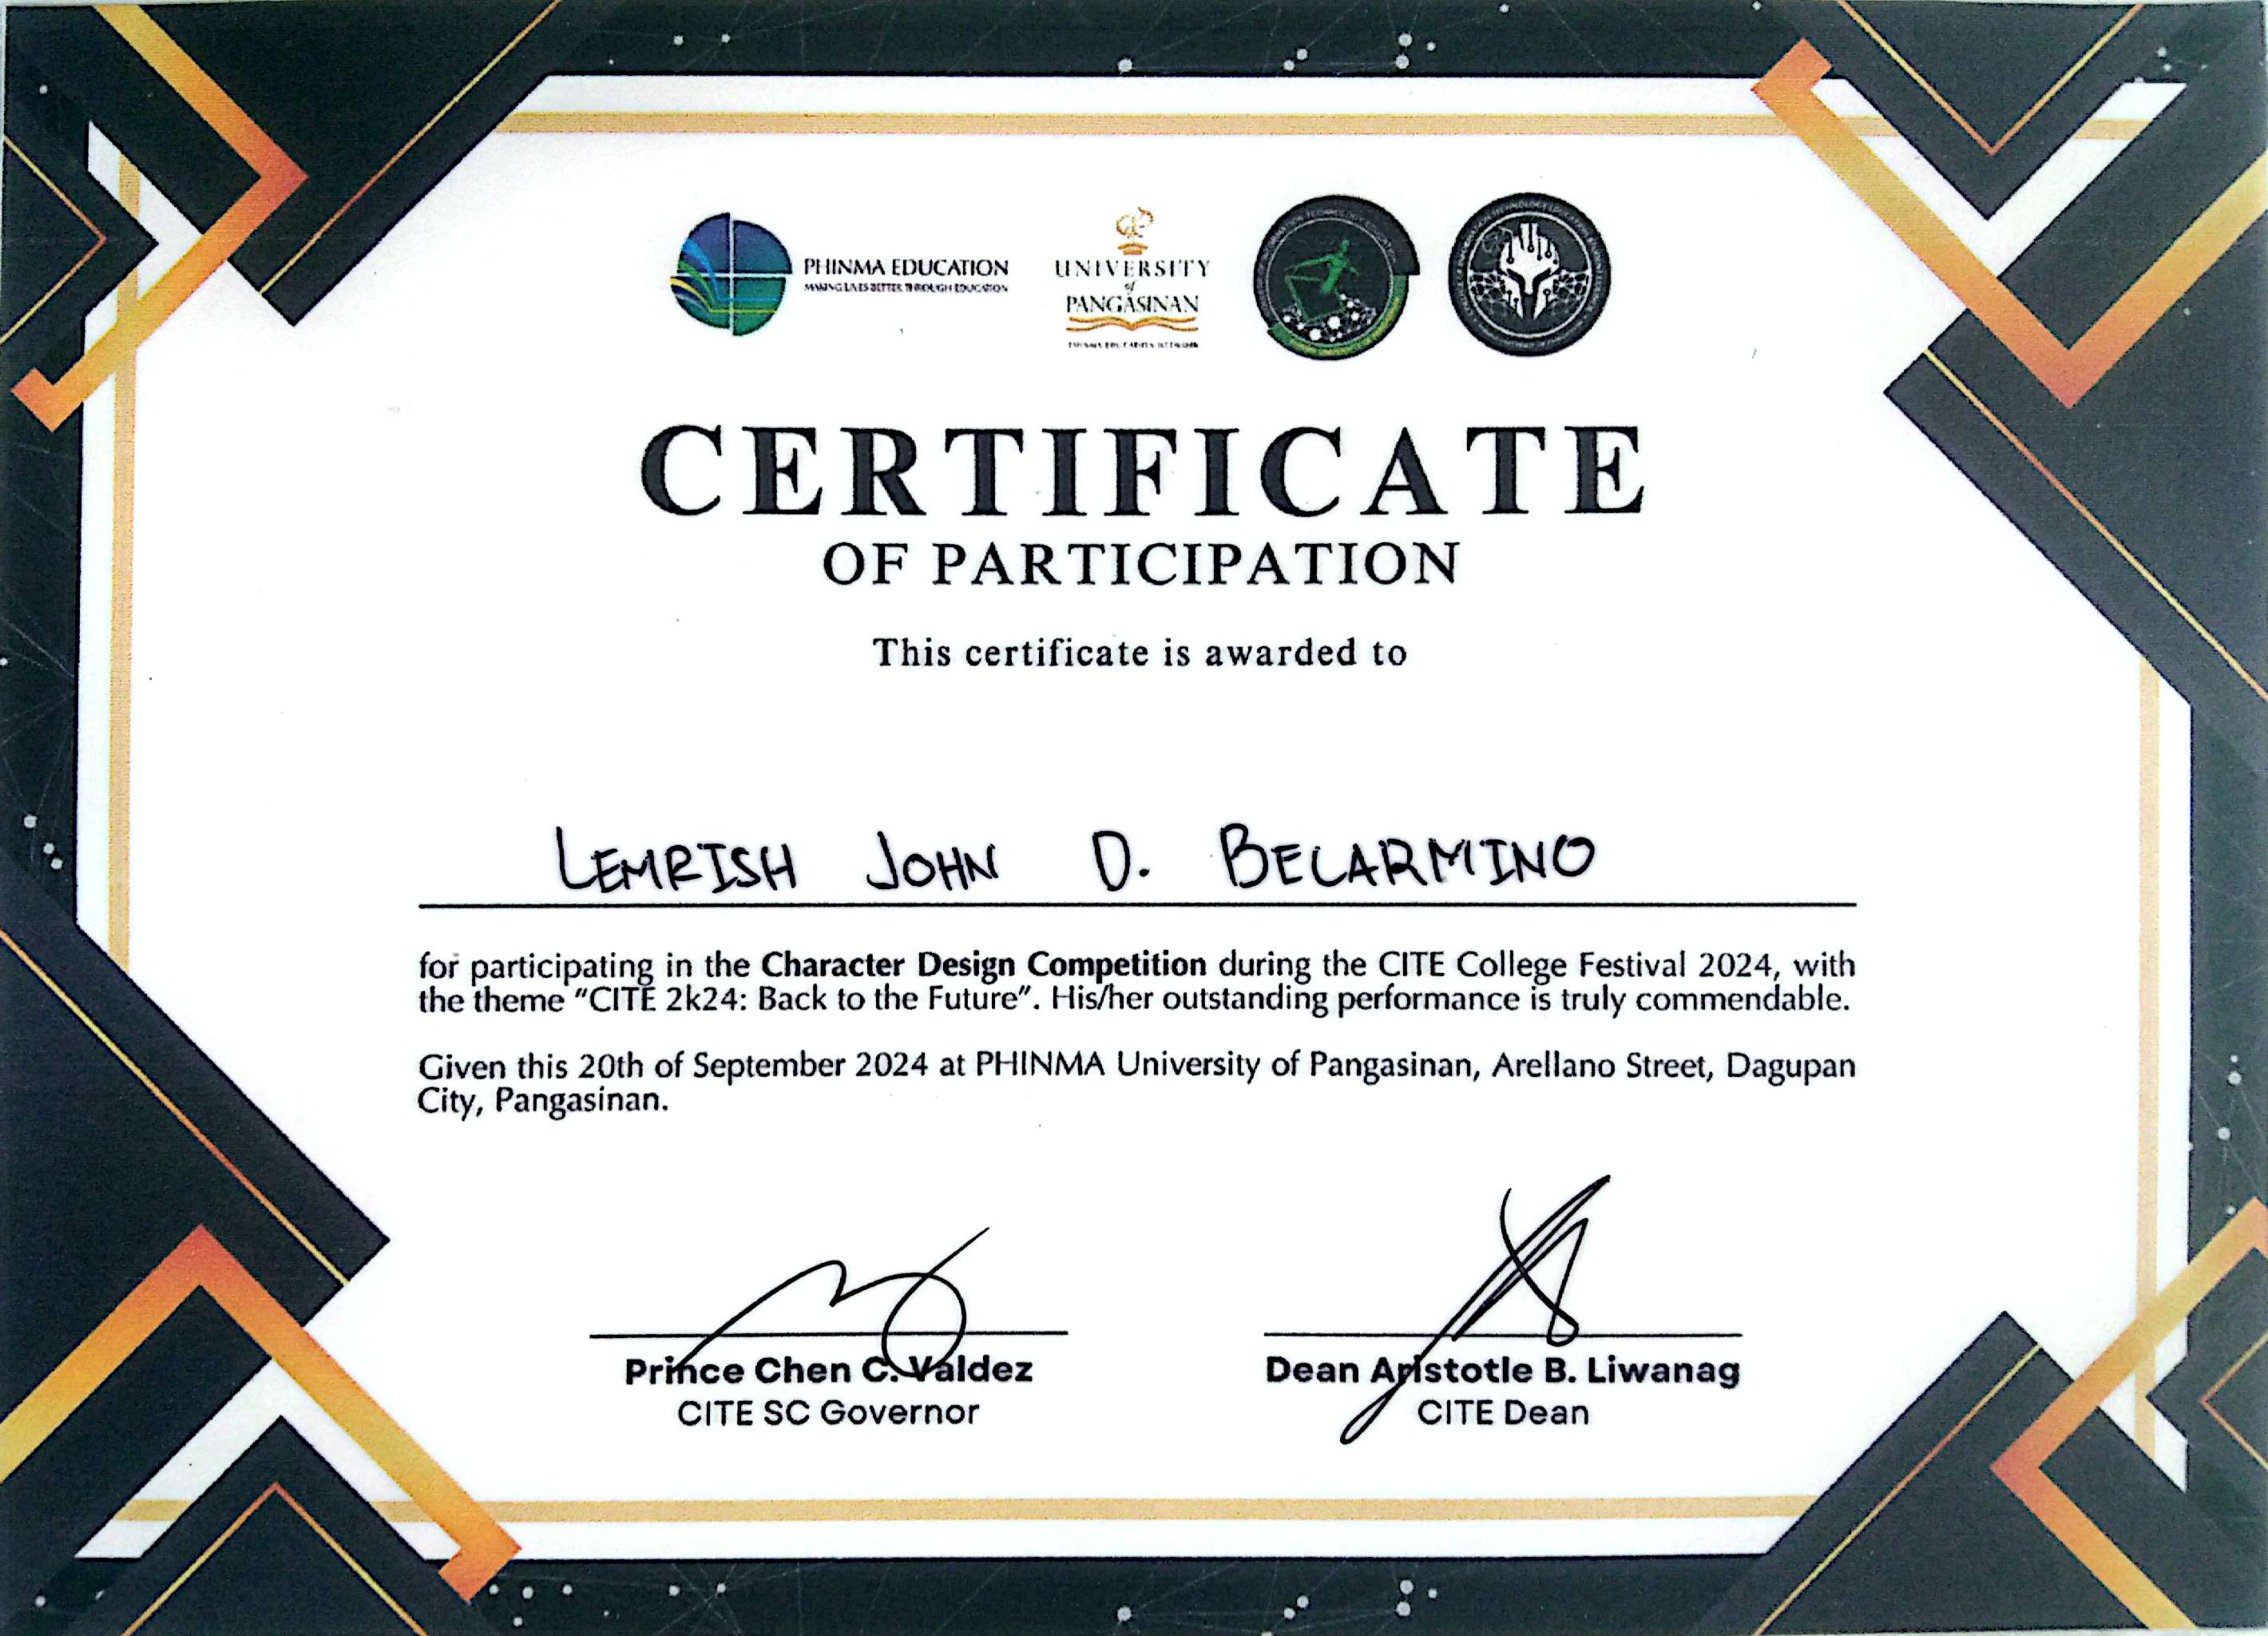 PHINMA EDUCATION
MAKING LIVES BETTER THROUGH EDUCATION
UNIVERSITY
of
PANGASINAN
PHINMA EDUCATION NETWORK
CERTIFICATE
OF PARTICIPATION
This certificate is awarded to
LEMRISH JOHN D. BELARMINO
for participating in the Character Design Competition during the CITE College Festival 2024, with
the theme "CITE 2k24: Back to the Future". His/her outstanding performance is truly commendable.
Given this 20th of September 2024 at PHINMA University of Pangasinan, Arellano Street, Dagupan
City, Pangasinan.
Prince Chen C. Valdez
CITE SC Governor
Dean Aristotle B. Liwanag
CITE Dean